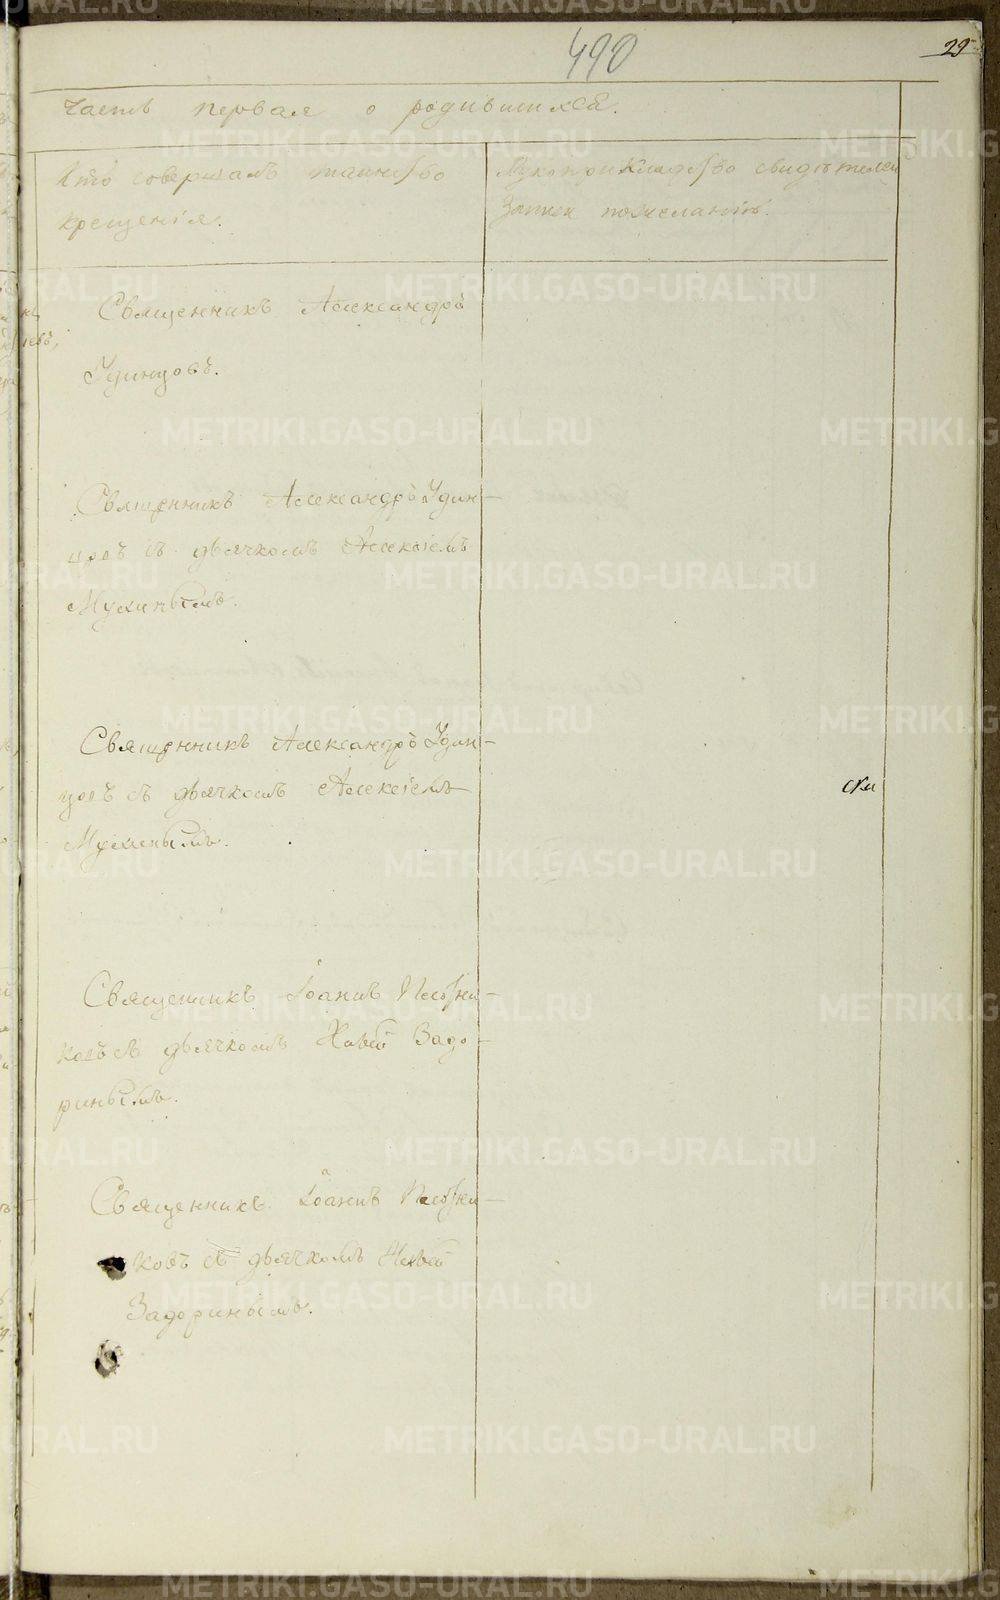 490
29
Часть первая о родившихся.
Кто совершалъ таинство
крещенія.
Рукоприкладство свидѣтелей
записи пожеланію.
Священникъ Александръ
Удинцовъ.
Священникъ Александръ Удин-
цовъ съ дьячкомъ Алексіемъ
Мухинымъ.
Священникъ Александръ Удин-
цовъ съ дьячкомъ Алексіемъ
Мухинымъ.
Священникъ Іоаннъ
ковъ съ дьячкомъ Задо-
ринымъ.
Священникъ Іоаннъ
ковъ съ дьячкомъ
Задоринымъ.
METRIKI.GASO-URAL.RU